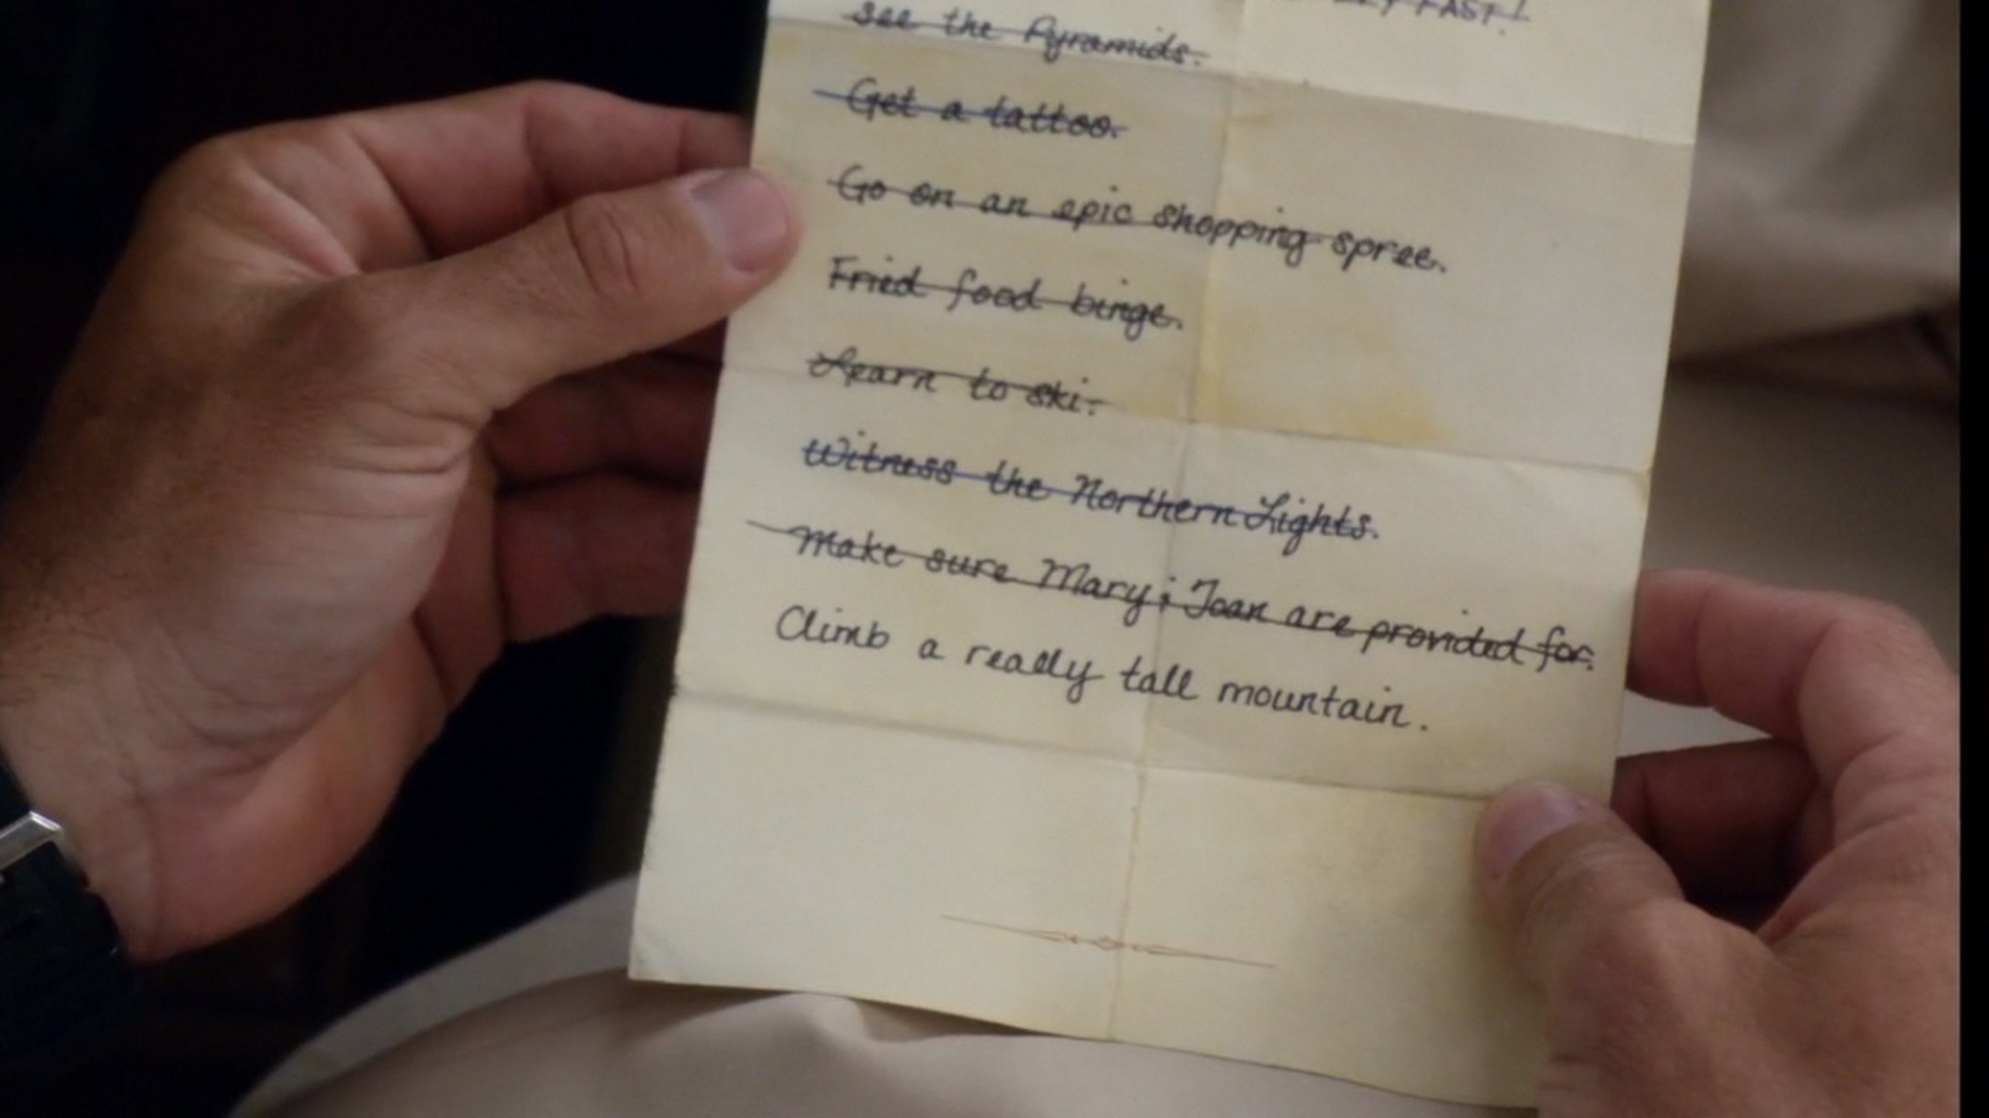 FAST!
see the Pyramids.
Get a tattoo.
Go on an epic shopping spree.
Fried food binge.
Learn to ski.
Witness the Northern Lights.
Make sure Mary & Joan are provided for.
Climb a really tall mountain.